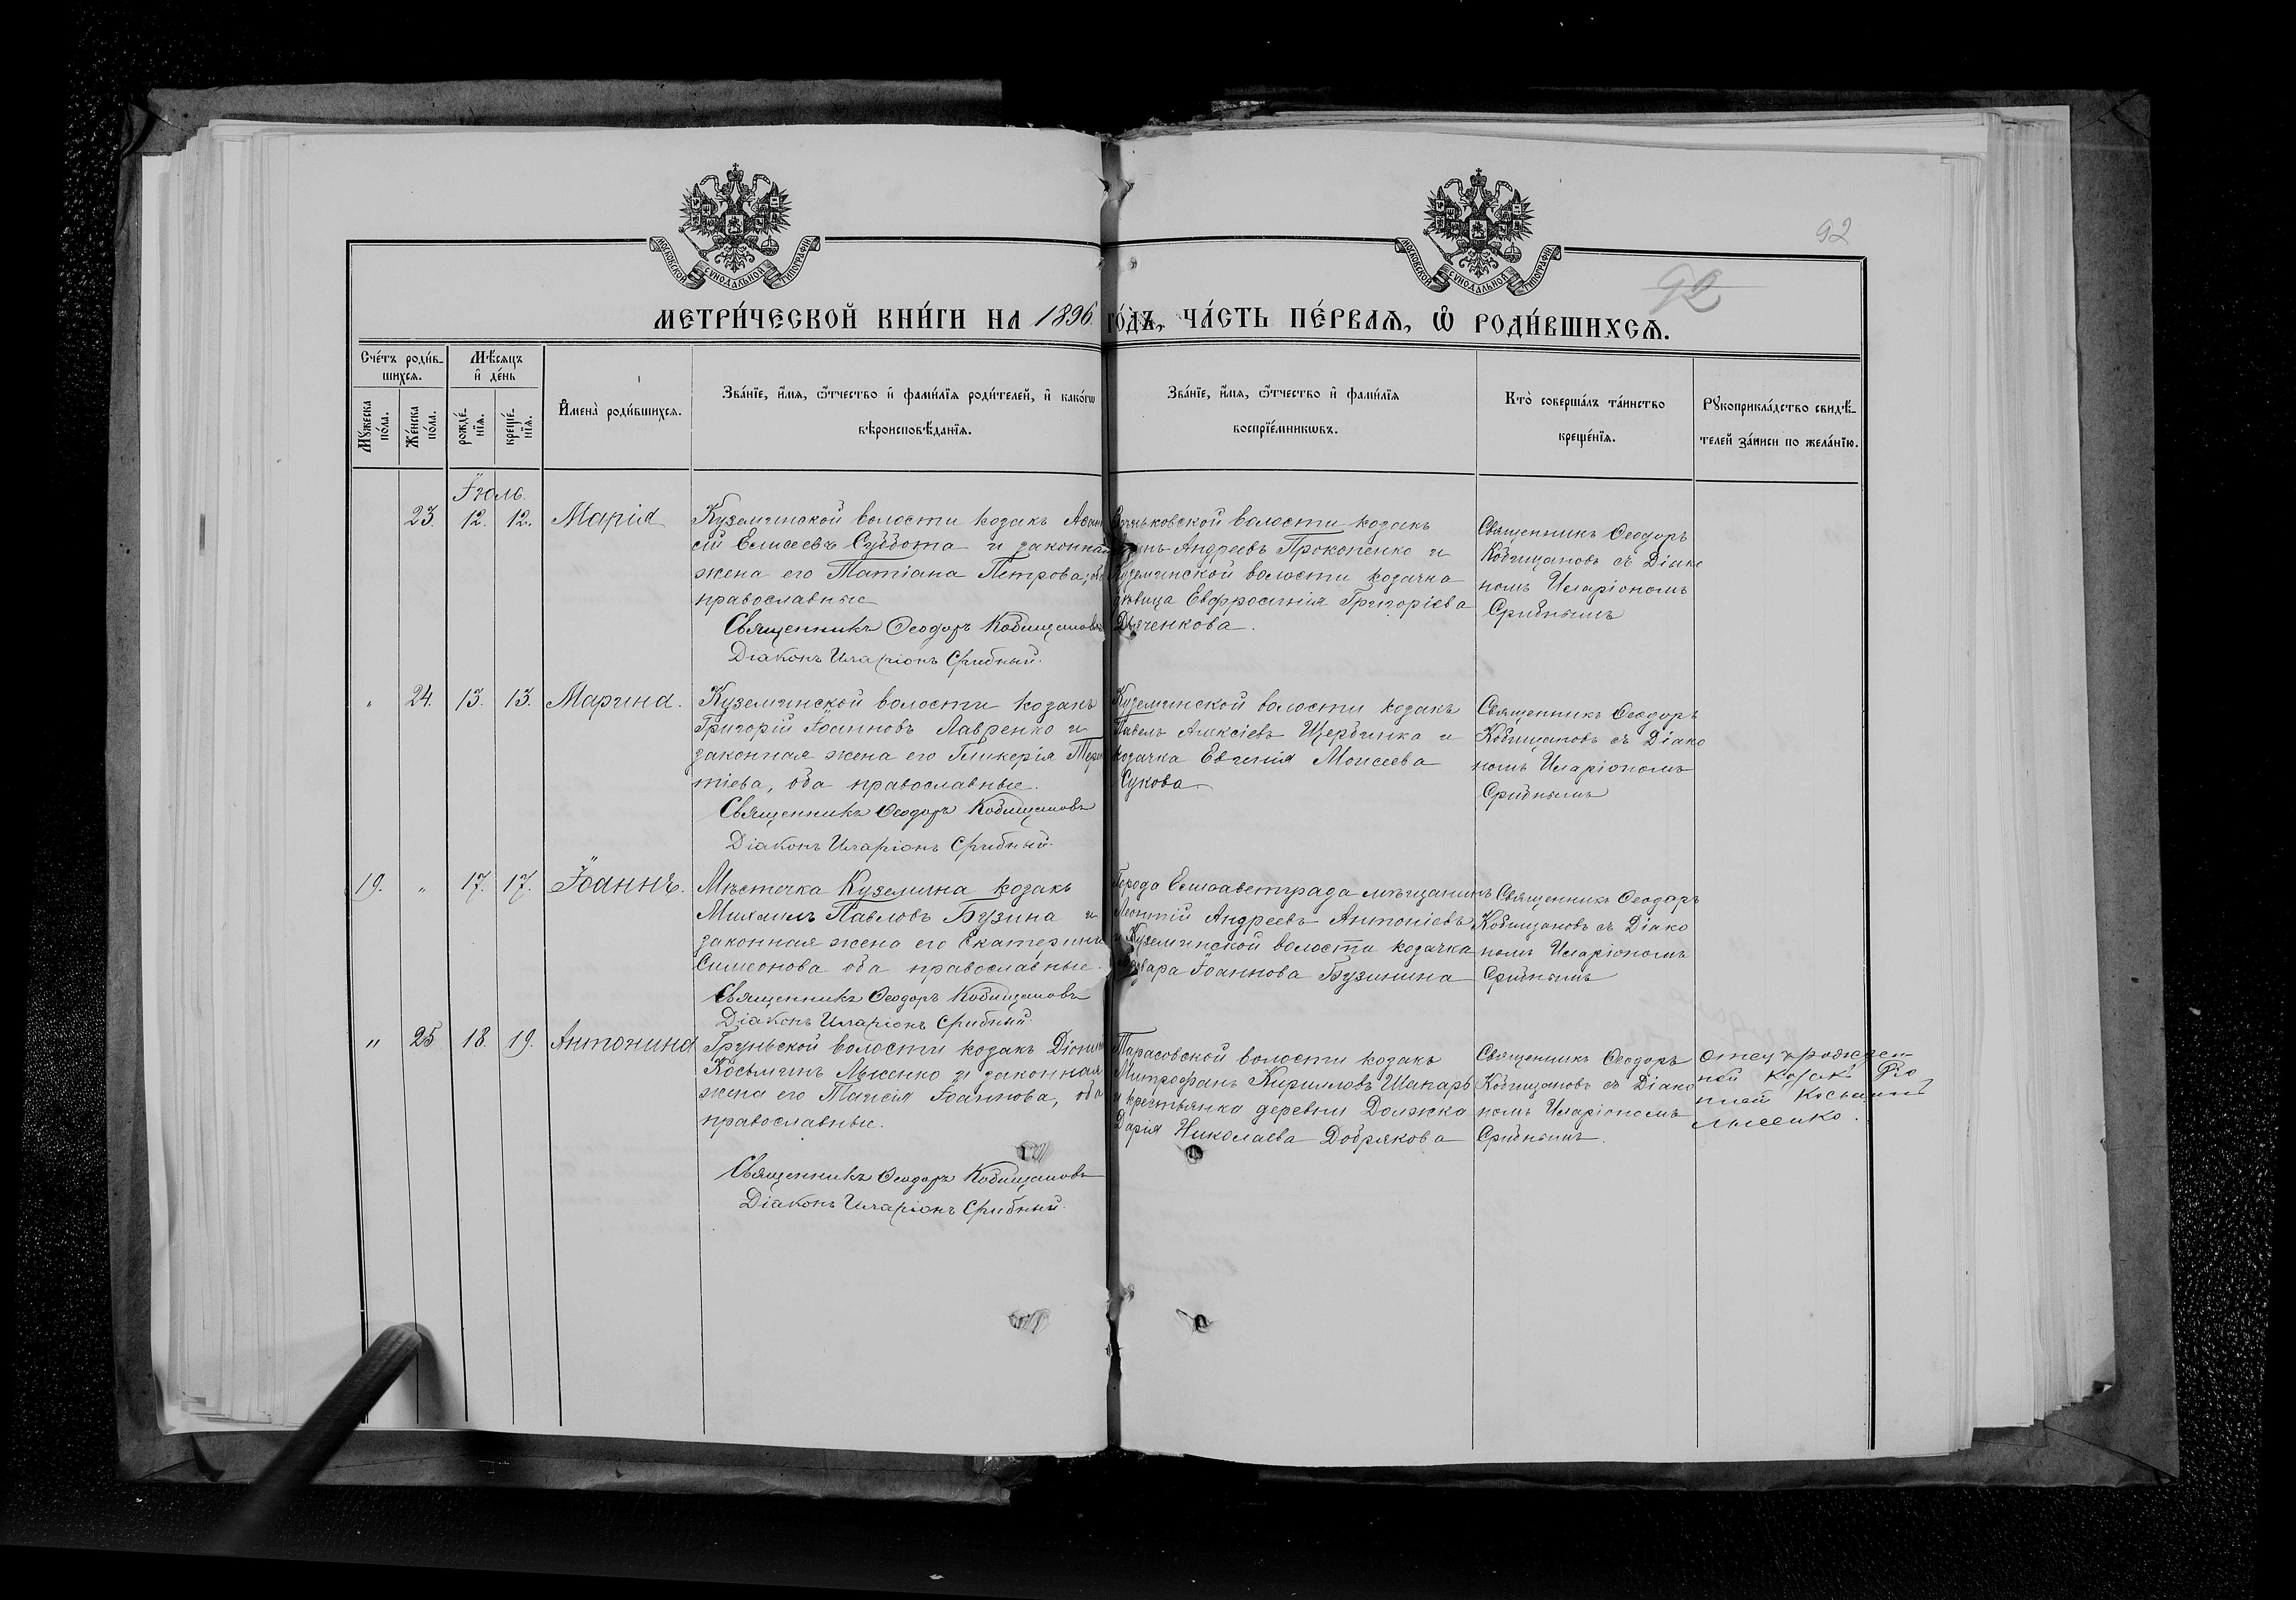 92
92
МОСКОВСКОЙ СУНОДАЛЬНОЙ ТИПОГРАФІИ
МОСКОВСКОЙ СУНОДАЛЬНОЙ ТИПОГРАФІИ
МЕТРИ́ЧЕСКОЙ КНИ́ГИ НА 1896 ГО́ДЪ, ЧА́СТЬ ПЕ́РВАѦ, Ѡ҆ РОДИ́ВШИХСѦ.
Сче́тъ роди́в-
шихсѧ.
Мѣ́сѧцъ
и҆ де́нь
Мꙋ́жеска
по́ла.
Же́нска
по́ла.
рожде́-
нїѧ.
креще́-
нїѧ.
И҆мена̀ роди́вшихсѧ.
Зва́нїе, и҆́мѧ, ѻ҆́тчество и҆ фами́лїѧ роди́телей, и҆ како́гѡ
вѣроисповѣ́данїѧ.
Зва́нїе, и҆́мѧ, ѻ҆́тчество и҆ фами́лїѧ
воспрїе́мникѡвъ.
Кто̀ соверша́лъ та́инство
креще́нїѧ.
Рꙋкоприкла́дство свидѣ́-
телей за́писи по жела́нїю.
Іюль.
23. 12. 12. Марія
Куземинской волости козакъ Аѳана
сій Елисеевъ Суббота и законная
жена его Татіана Петрова, оба
православные
Священникъ Ѳеодоръ Кобищановъ
Діаконъ Иларіонъ Срибный.
волости козакъ
Андреевъ Прокопенко и
Куземинской волости козачка
дѣвица Евфросинія Григоріева
Дьяченкова.
Священникъ Ѳеодоръ
Кобищановъ съ Діако
номъ Иларіономъ
Срибнымъ
" 24. 13. 13. Марина.
Куземинской волости козакъ
Григорій Іоанновъ Лавренко и
законная жена его Гликерія Терен
тіева, оба православные.
Священникъ Ѳеодоръ Кобищановъ
Діаконъ Иларіонъ Срибный.
Куземинской волости козакъ
Павелъ Алексіевъ Щербинка и
козачка Евгенія Моисеева
Сукова
Священникъ Ѳеодоръ
Кобищановъ съ Діако
номъ Иларіономъ
Срибнымъ
19. " 17. 17. Іоаннъ.
Мѣстечка Куземина козакъ
Михаилъ Павловъ Бузина и
законная жена его Екатерина
Симеонова оба православные.
Священникъ Ѳеодоръ Кобищановъ
Діаконъ Иларіонъ Срибный.
Города Елисаветграда мѣщанинъ
Леонтій Андреевъ Антоніевъ
и Куземинской волости козачка
Іоаннова Бузинина
Священникъ Ѳеодоръ
Кобищановъ съ Діако
номъ Иларіономъ
Срибнымъ
" 25 18. 19. Антонина
Груньской волости козакъ Діонисій
Косьминъ Лысенко и законная
жена его Таисія Іоаннова, оба
православные.
Священникъ Ѳеодоръ Кобищановъ
Діаконъ Иларіонъ Срибный.
Тарасовской волости козакъ
Митрофанъ Кирилловъ Шапаръ
и крестьянка деревни Должка
Дарія Николаева Добрякова
Священникъ Ѳеодоръ
Кобищановъ съ Діако
номъ Иларіономъ
Срибнымъ.
отец рожден-
ной козакъ Діо
нисій Косьминъ
Лысенко.